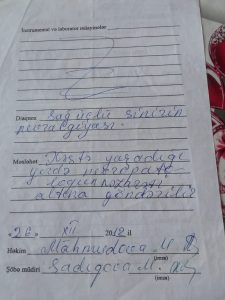 İnstrumental və laborator müayinələr
Diaqnoz Sağ üçlü sinirin
nevralgiyası.
Məsləhət Xəstə yaşadığı
yerdə nevropato-
loqun nəzarəti
altına göndərilir
« 26 » XII 2012 il
Həkim Mahmudova M
(imza)
Şöbə müdiri Sadıqova M.
(imza)